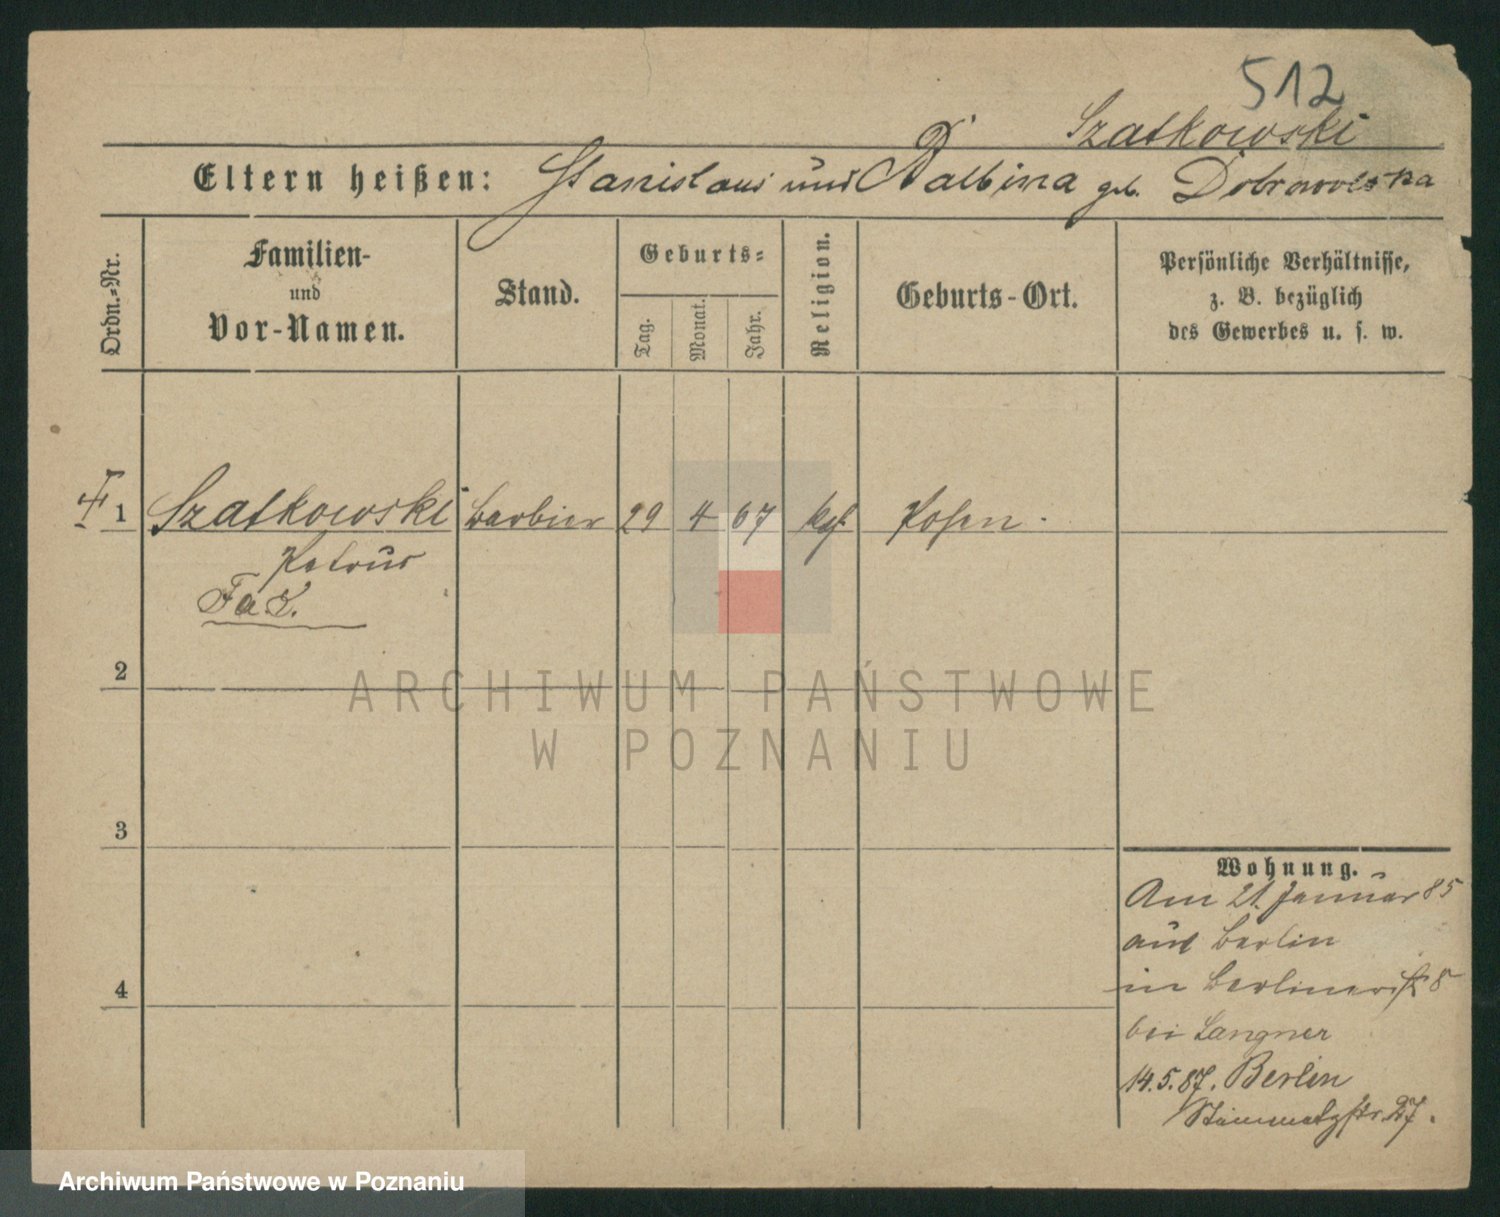 512
Szatkowski
Eltern heißen: Stanislaus und Balbina geb. Dobrowolska
Ordn.-Nr.
Familien-
und
Vor-Namen.
Stand.
Geburts-
Tag.
Monat.
Jahr.
Religion.
Geburts-Ort.
Persönliche Verhältnisse,
z. B. bezüglich
des Gewerbes u. s. w.
1 Szatkowski Barbier 29 4 67 kath Posen.
Petrus
2
3
4
Wohnung.
Am 21. Januar 85
aus Berlin
in Berlinerstr 8
bei Langner
14.5.87. Berlin
27.
ARCHIWUM PAŃSTWOWE
W POZNANIU
Archiwum Państwowe w Poznaniu